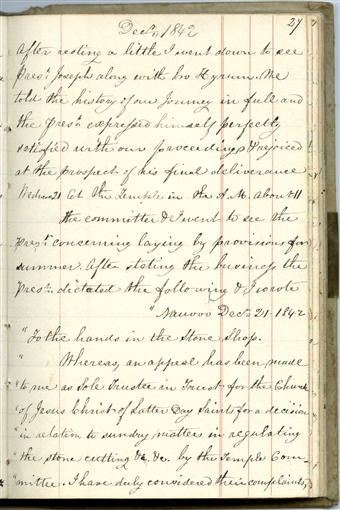 Decr. 1842
27
After resting a little I went down to see
Prest. Joseph along with bro Hyrum. We
told the history of our Journey in full and
the Prest. expressed himself perfectly
satisfied with our proceedings & rejoiced
at the prospect of his final deliverance
Wednes 21 At the Temple in the A.M. About 11
the committee & I went to see the
Prest. concerning laying by provisions for
summer. After stating the business the
Prest. dictated the following & I wrote
"Nauvoo Decr. 21. 1842
"To the hands in the Stone Shop.
" Whereas, an appeal has been made
"to me as Sole Trustee in Trust for the Church
"of Jesus Christ of Latter Day Saints for a decision
"in relation to sundry matters in regulating
"the stone cutting &c. &c. by the Temple Com-
"mittee. I have duly considered their complaints,